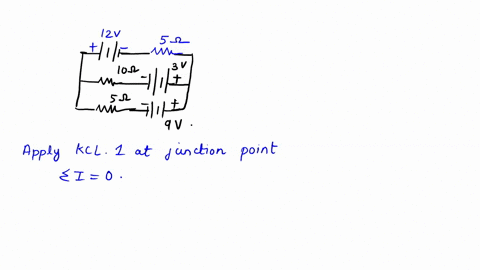 12V
+ - 5Ω
10Ω - 3V +
5Ω - +
9V.
Apply KCL. 1 at junction point
ΣI = 0.